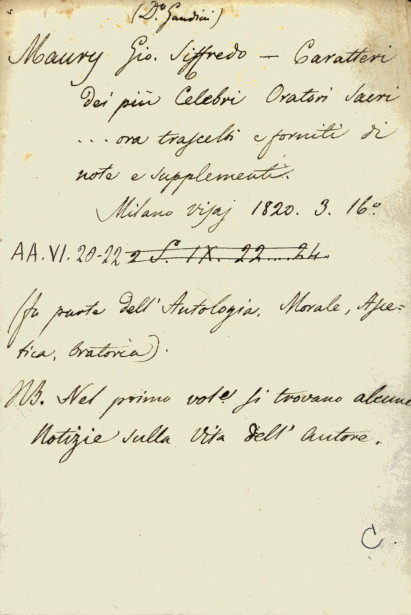 (D.º Gandini)
Maury Gio. Siffredo — Caratteri
dei più Celebri Oratori Sacri
... ora trascelti e forniti di
note e supplementi.
Milano Visaj 1820. 3. 16º
AA. VI. 20-22 2 S. IX. 22....24.
(fa parte dell'Antologia, Morale, Asce-
tica, Oratoria).
NB. Nel primo vol.e si trovano alcune
Notizie sulla Vita dell'Autore.
C.